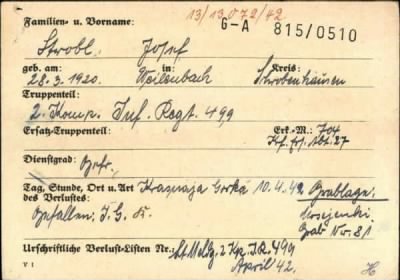 13/13 072/42
Familien- u. Vorname:
G-A 815/0510
Strobl, Josef
geb. am: in: Kreis:
28.3.1920. Weilenbach Schrobenhausen
Truppenteil:
2. Komp. Inf. Regt. 499
Ersatz-Truppenteil: Erk.-M.: 704
Abt. 27
Dienstgrad: Gefr.
Tag, Stunde, Ort u. Art Krasnaja Gorka 10.4.42. Grablage:
des Verlustes:
Gefallen, I.G. Grab Nr. 81
Urschriftliche Verlust-Listen Nr.: 2 Kp. I.R. 499
April 42.
V 1